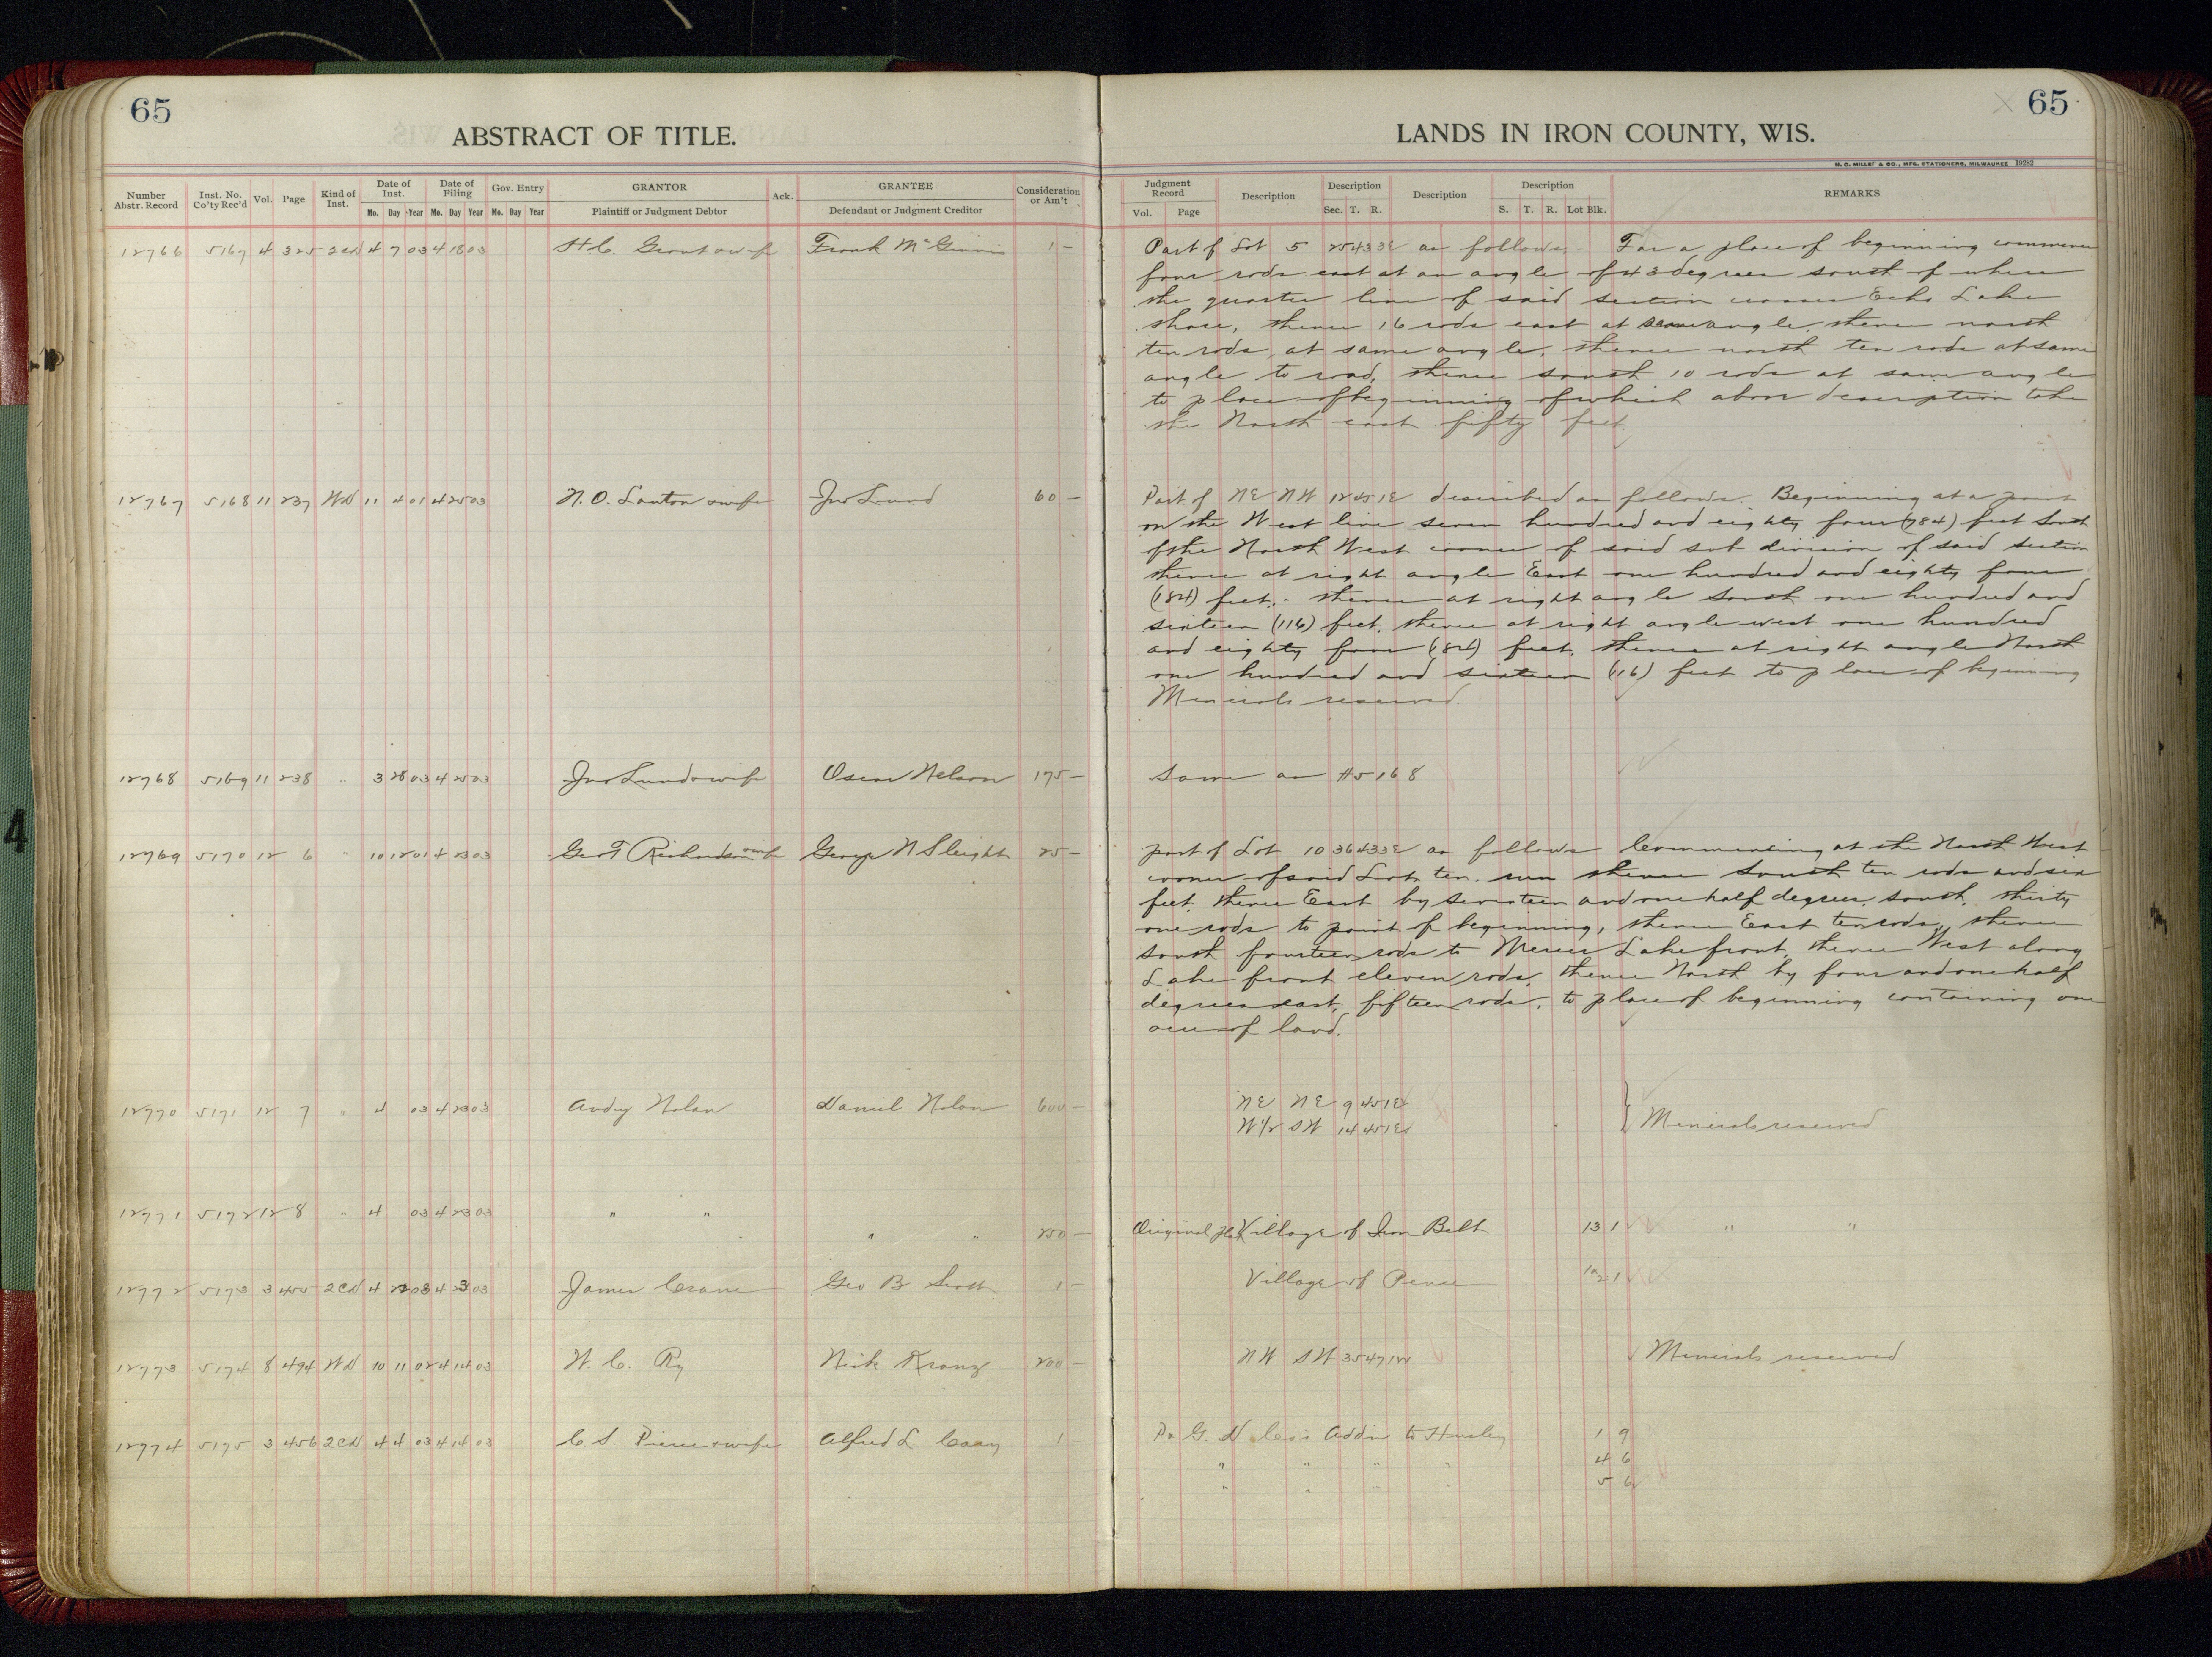 65
ABSTRACT OF TITLE.
Number Abstr. Record Inst. No. Co'ty Rec'd Vol. Page Kind of Inst. Date of Inst. Mo. Day Year Date of Filing Mo. Day Year Gov. Entry Mo. Day Year GRANTOR Plaintiff or Judgment Debtor Ack. GRANTEE Defendant or Judgment Creditor Consideration or Am't
12766 5167 4 325 2CD 4 7 03 4 18 03 H.C. Grant & wife Frank McGinnis 1 –
12767 5168 11 237 WD 11 4 01 4 25 03 N.O. Lawton & wife Jno Lund 60 –
12768 5169 11 238 " 3 28 03 4 25 03 Jno Lund & wife Oscar Nelson 175 –
12769 5170 12 6 " 10 12 01 4 23 03 Geo T Richardson & wife George N Sleight 25 –
12770 5171 12 7 " 4 03 4 23 03 Andy Nolan Daniel Nolan 600 –
12771 5172 12 8 " 4 03 4 23 03 " "
" " 250 –
12772 5173 3 455 2CD 4 22 03 4 23 03 James Crane Geo B Scott 1 –
12773 5174 8 494 WD 10 11 02 4 14 03 W.C. Ry Nick Kranz 200 –
12774 5175 3 456 2CD 4 4 03 4 14 03 C.S. Pierce & wife Alfred L Cary 1 –
65
LANDS IN IRON COUNTY, WIS.
H. C. MILLER & CO., MFG. STATIONERS, MILWAUKEE 19282
Judgment Record Vol. Page Description Description Sec. T. R. Description Description S. T. R. Lot Blk. REMARKS
Part of Lot 5 25 43 3E as follows:- For a place of beginning commence
four rods east at an angle of 43 degrees south of where
the quarter line of said section crosses Echo Lake
shore, thence 16 rods east at same angle, thence north
ten rods at same angle, thence north ten rods at same
angle to road, thence south 10 rods at same angle
to place of beginning of which above description take
the North east fifty feet
Part of NE NW 12 45 1E described as follows. Beginning at a point
on the West line seven hundred and eighty four (784) feet South
of the North West corner of said sub division of said section
thence at right angle East one hundred and eighty four
(184) feet, - thence at right angle South one hundred and
sixteen (116) feet, thence at right angle west one hundred
and eighty four (184) feet, thence at right angle North
one hundred and sixteen (116) feet to place of beginning
Minerals reserved.
Same as #5168
part of Lot 10 36 43 3E as follows Commencing at the North West
corner of said Lot ten, run thence South ten rods and six
feet, thence East by seventeen and one half degrees, south, thirty
one rods to point of beginning, thence East ten rods, thence
south fourteen rods to Mercer Lake front, thence West along
Lake front eleven rods, thence North by four and one half
degrees east, fifteen rods, to place of beginning containing one
acre of land.
NE NE 9 45 1E
W1/2 SW 14 45 1E } Minerals reserved
Original plat Village of Iron Belt 13 1 " "
Village of Pence 1
NW SW 35 47 1W Minerals reserved
P. G. D Co's Addn to Hurley 1 9
" " " " 4 6
" " " " 5 6